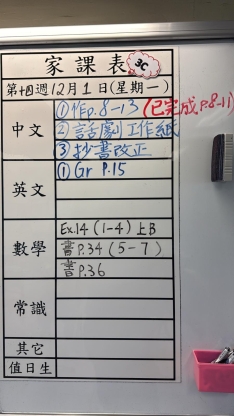 家課表 3C
第十四週12月1日(星期一)
中文
①作p.8-13 (已完成p.8-11)
②話劇工作紙
③抄書改正
英文
①Gr P.15
數學
Ex.14 (1-4) 上B
書P.34 (5-7)
書P.36
常識
其它
值日生